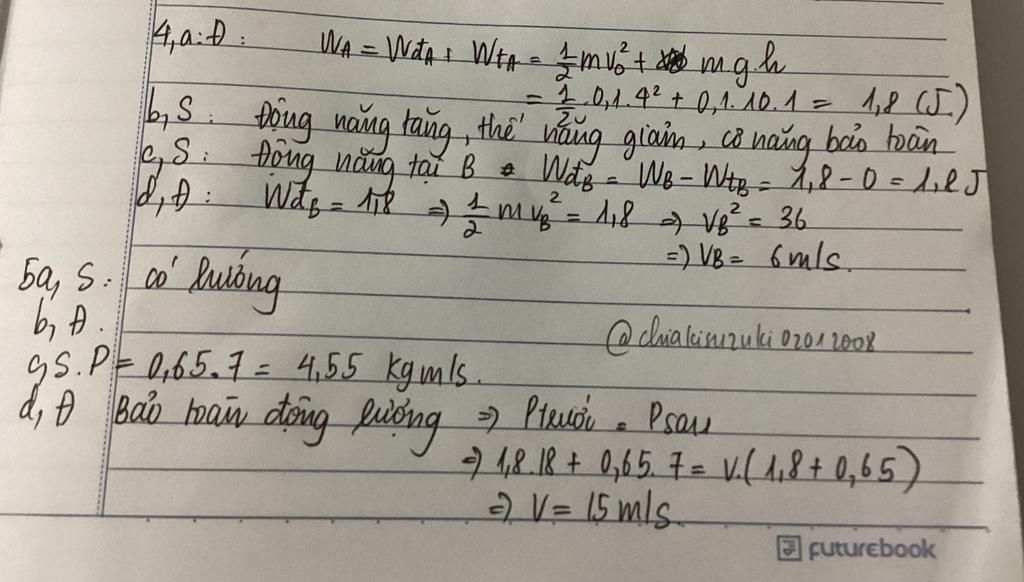 4, a: Đ: WA = WđA + WtA = 1/2 mv₀² + mgh
= 1/2 . 0,1 . 4² + 0,1 . 10 . 1 = 1,8 (J.)
b, S: Động năng tăng, thế năng giảm, cơ năng bảo toàn
c, S: Động năng tại B WđB = WB - WtB = 1,8 - 0 = 1,8 J
d, Đ: WđB = 1,8 => 1/2 m vB² = 1,8 => vB² = 36
=> vB = 6 m/s.
5a, S: có hướng
b, Đ.
c, S. P = 0,65.7 = 4,55 kgm/s.
d, Đ Bảo toàn động lượng => Ptrước = Psau
=> 1,8.18 + 0,65.7 = v.(1,8 + 0,65)
=> v = 15 m/s.
futurebook